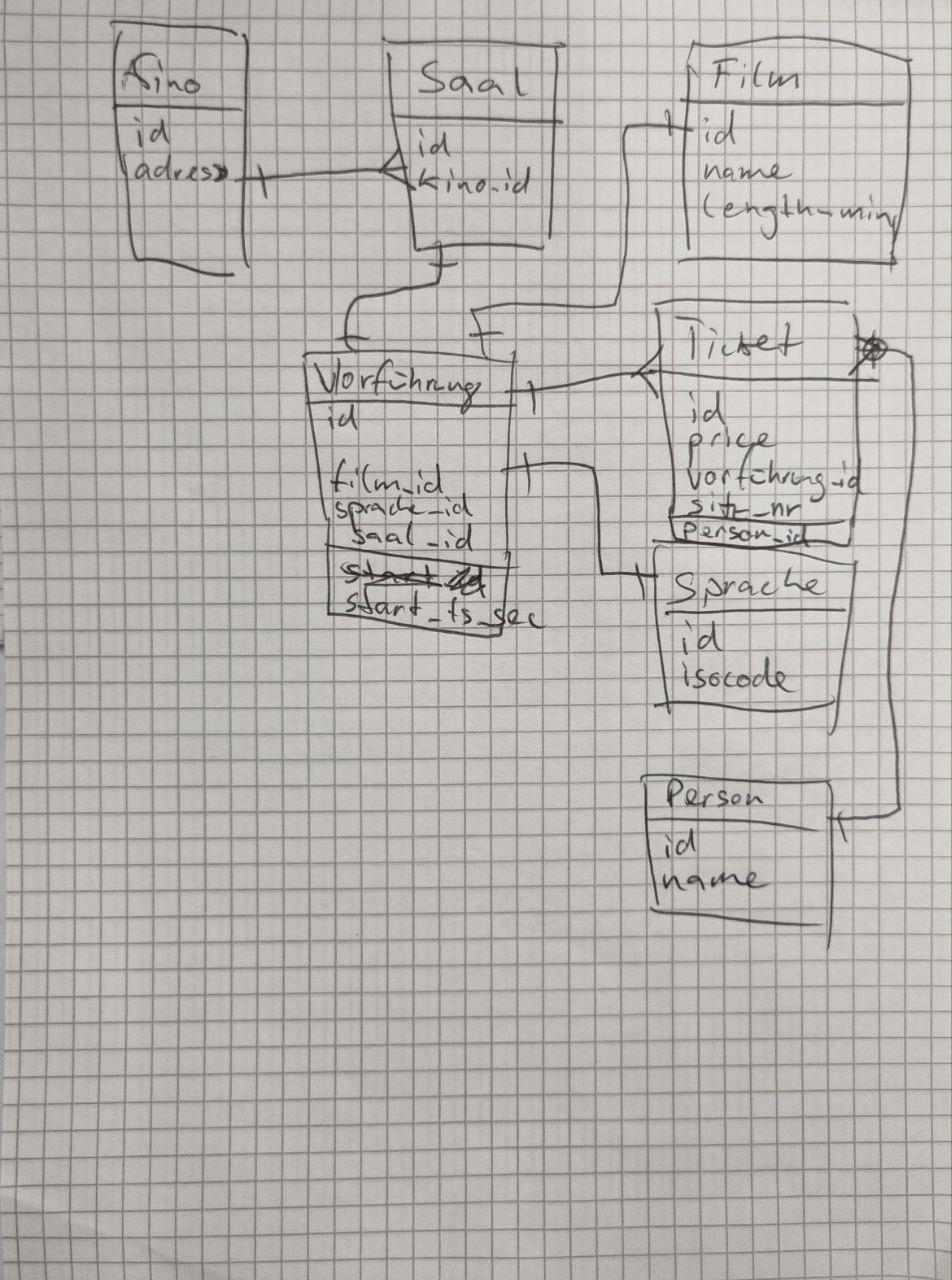 Kino
id
adress
Saal
id
kino_id
Film
id
name
length_min
Vorführung
id
film_id
sprache_id
saal_id
start_id
start_ts_sec
Ticket
id
price
vorführung_id
sitz_nr
person_id
Sprache
id
isocode
Person
id
name